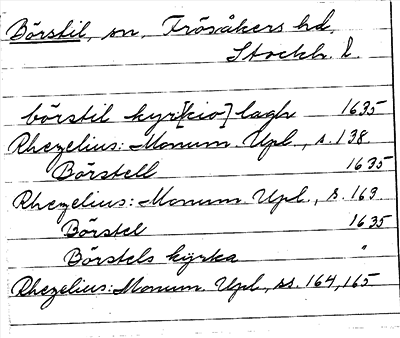 Börstil, sn, Frösåkers hd,
Stockh. l.
börstil kyr[kio] lagh 1635
Rhezelius: Monum. Upl., s. 138.
Börstell 1635
Rhezelius: Monum. Upl., s. 163.
Börstel 1635
Börstels kyrka "
Rhezelius: Monum. Upl., ss. 164, 165